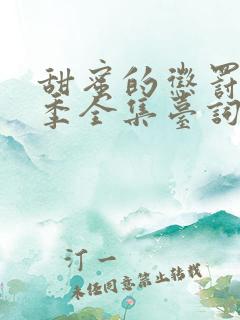 甜蜜的懲罰
季全集臺詞
汀一
未经同意禁止转载